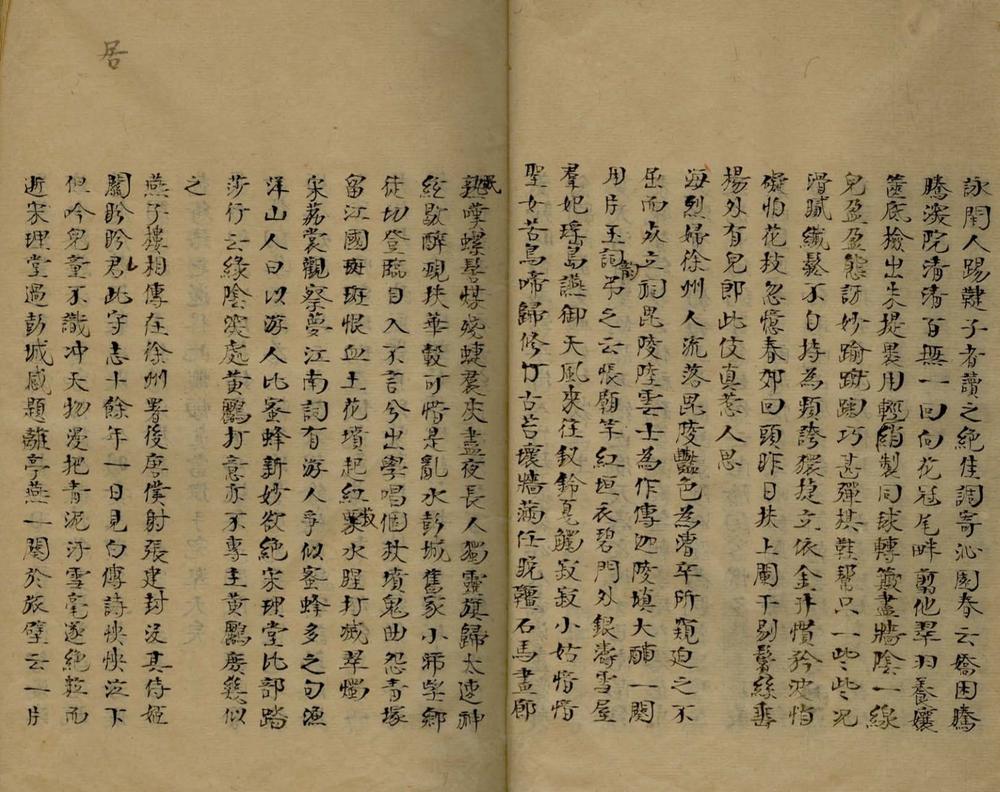 詠閨人踢鞬子者讀之絶佳調寄沁園春云嬌困騰
騰深院清清百無一回向花冠尾畔翦他翠羽養孃
篋底撿出朱提裹用輕綃製同毬轉簸盡牆陰一線
兒盈盈態訝妙踰蹴踘巧甚彈棋鞋幫只一些些况
滑膩纎鬆不自持為頻誇獧捷立依金井慣矜波悄
礙怕花枝忽憶春郊回頭昨日扶上闌干剔鬢絲垂
楊外有兒郎此伎真惹人思
海烈婦徐州人流落毘陵豔色為漕卒所窺迫之不
屈而死立祠毘陵陸雲士為作傳迦陵填大酺一闋
用片玉詞韵弔之云悵廟竿紅垣衣碧門外銀濤雪屋
羣妃瑤島讌御天風來往釵鈴戛觸寂寂小姑愔愔
聖女苦鳥啼歸修竹古苔壞牆滿任晚韁石馬畫廊
民塾孽螺髻慵愛蜨裙夾盡夜長人獨靈旗歸太速神
絃歇醉現扶華轂可惜是亂水彭城舊家小邪柴鄉
徒切登臨目入不言兮出學唱個秋墳鬼曲怨青塚
留江國斑斑恨血土花墳起紅褱水腥打滅翠燭
宋荔裳觀察夢江南詞有游人爭似蜜蜂多之句漁
洋山人曰以游人比蜜蜂新妙欲絶宋理堂比部踏
莎行云綠陰深處黄鸝打意亦不專主黄鸝庶幾似
之
燕子樓相傳在徐州署後唐僕射張建封没其侍姬
關盼盼君此守志十餘年一日見白傅詩怏怏泣下
但吟兒童不識冲天物漫把青泥汙雪毫遂絶粒而
逝宋理堂過彭城感題離亭燕一闋於旅壁云一片
居